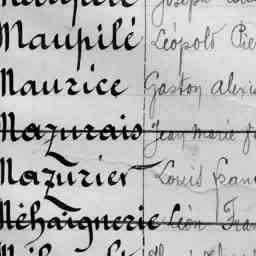 Maupilé Léopold Pie
Maurice Gaston Alexis
Mazurais Jean Marie
Mazurier Louis Franc
Méhaignerie Léon Fran